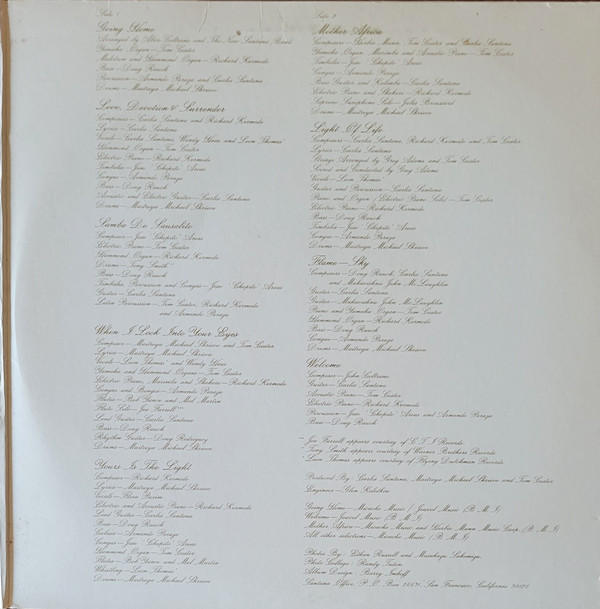 Side 1
Going Home
Arranged by Alice Coltrane and The New Santana Band
Yamaha Organ—Tom Coster
Mellotron and Hammond Organ—Richard Kermode
Bass—Doug Rauch
Percussion—Armando Peraza and Carlos Santana
Drums—Maitreya Michael Shrieve
Love, Devotion & Surrender
Composers—Carlos Santana and Richard Kermode
Lyrics—Carlos Santana
Vocals—Carlos Santana, Wendy Haas and Leon Thomas
Hammond Organ—Tom Coster
Electric Piano—Richard Kermode
Timbales—Jose "Chepito" Areas
Congas—Armando Peraza
Bass—Doug Rauch
Acoustic and Electric Guitar—Carlos Santana
Drums—Maitreya Michael Shrieve
Samba De Sausalito
Composer—Jose "Chepito" Areas
Electric Piano—Tom Coster
Hammond Organ—Richard Kermode
Drums—Tony Smith
Bass—Doug Rauch
Timbales, Percussion and Congas—Jose "Chepito" Areas
Guitar—Carlos Santana
Latin Percussion—Tom Coster, Richard Kermode
and Armando Peraza
When I Look Into Your Eyes
Composer—Maitreya Michael Shrieve and Tom Coster
Lyrics—Maitreya Michael Shrieve
Vocals—Leon Thomas and Wendy Haas
Yamaha and Hammond Organs—Tom Coster
Electric Piano, Marimba and Shekere—Richard Kermode
Congas and Bongos—Armando Peraza
Flutes—Bob Yance and Mel Martin
Flute Solo—Joe Farrell
Lead Guitar—Carlos Santana
Bass—Doug Rauch
Rhythm Guitar—Doug Rodriguez
Drums—Maitreya Michael Shrieve
Yours Is The Light
Composer—Richard Kermode
Lyrics—Maitreya Michael Shrieve
Vocals—Flora Purim
Electric and Acoustic Piano—Richard Kermode
Lead Guitar—Carlos Santana
Bass—Doug Rauch
Drums—Maitreya Michael Shrieve
Cabasa—Armando Peraza
Congas—Jose "Chepito" Areas
Hammond Organ—Tom Coster
Flutes—Bob Yance and Mel Martin
Whistling—Leon Thomas
Drums—Maitreya Michael Shrieve
Side 2
Mother Africa
Composers—Herbie Mann, Tom Coster and Carlos Santana
Yamaha Organ, Marimba and Acoustic Piano—Tom Coster
Timbales—Jose "Chepito" Areas
Congas—Armando Peraza
Bass Guitar and Kalimba—Carlos Santana
Electric Piano and Shekere—Richard Kermode
Soprano Saxophone Solo—Jules Broussard
Drums—Maitreya Michael Shrieve
Light Of Life
Composers—Carlos Santana, Richard Kermode and Tom Coster
Lyrics—Carlos Santana
Strings Arranged by Greg Adams and Tom Coster
Scored and Conducted by Greg Adams
Vocals—Leon Thomas
Guitar and Percussion—Carlos Santana
Piano and Organ (Electric Piano Solo)—Tom Coster
Electric Piano—Richard Kermode
Bass—Doug Rauch
Timbales—Jose "Chepito" Areas
Congas—Armando Peraza
Drums—Maitreya Michael Shrieve
Flame—Sky
Composers—Doug Rauch, Carlos Santana
and Mahavishnu John McLaughlin
Guitar—Carlos Santana
Guitar—Mahavishnu John McLaughlin
Piano and Yamaha Organ—Tom Coster
Hammond Organ—Richard Kermode
Bass—Doug Rauch
Congas—Armando Peraza
Drums—Maitreya Michael Shrieve
Welcome
Composer—John Coltrane
Guitar—Carlos Santana
Acoustic Piano—Tom Coster
Electric Piano—Richard Kermode
Percussion—Jose "Chepito" Areas and Armando Peraza
Bass—Doug Rauch
Joe Farrell appears courtesy of C.T.I. Records.
Tony Smith appears courtesy of Warner Brothers Records.
Leon Thomas appears courtesy of Flying Dutchman Records.
Produced By: Carlos Santana, Maitreya Michael Shrieve and Tom Coster
Engineer—Glen Kolotkin
Going Home—Mioncho Music / Jowcol Music (B.M.I.)
Welcome—Jowcol Music (B.M.I.)
Mother Africa—Mioncho Music and Herbie Mann Music Corp. (B.M.I.)
All other selections—Mioncho Music (B.M.I.)
Photos By: Ethan Russell and Masahisa
Photo Collage: Randy Tuten
Album Design: Barry Imhoff
Santana Office, P.O. Box San Francisco, California